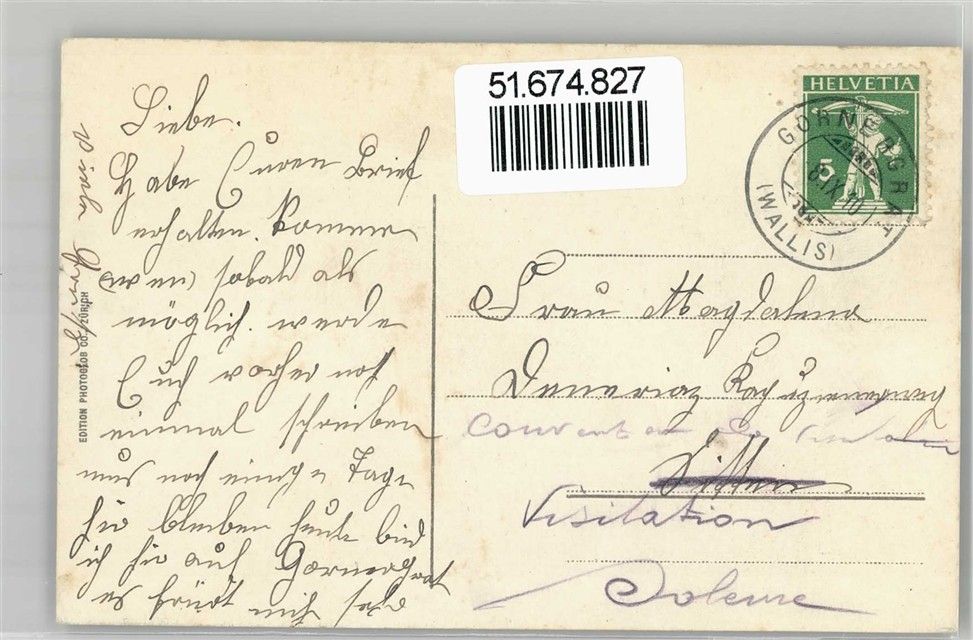 51.674.827
HELVETIA
5
GORNERGRAT
(WALLIS)
8.IX.10
Liebe.
Habe Euren Brief
erhalten. Komme
sobald als
möglich. werde
Euch vorher noch
einmal schreiben
mus noch einige Tage
hir bleiben heute bin
ich hir auf Gornergrat
es freut mich sehr
EDITION PHOTOGLOB CO. ZÜRICH
Frau Magdalena
Deneriaz
Couvent de la
Sitten
Visitation
Soleure